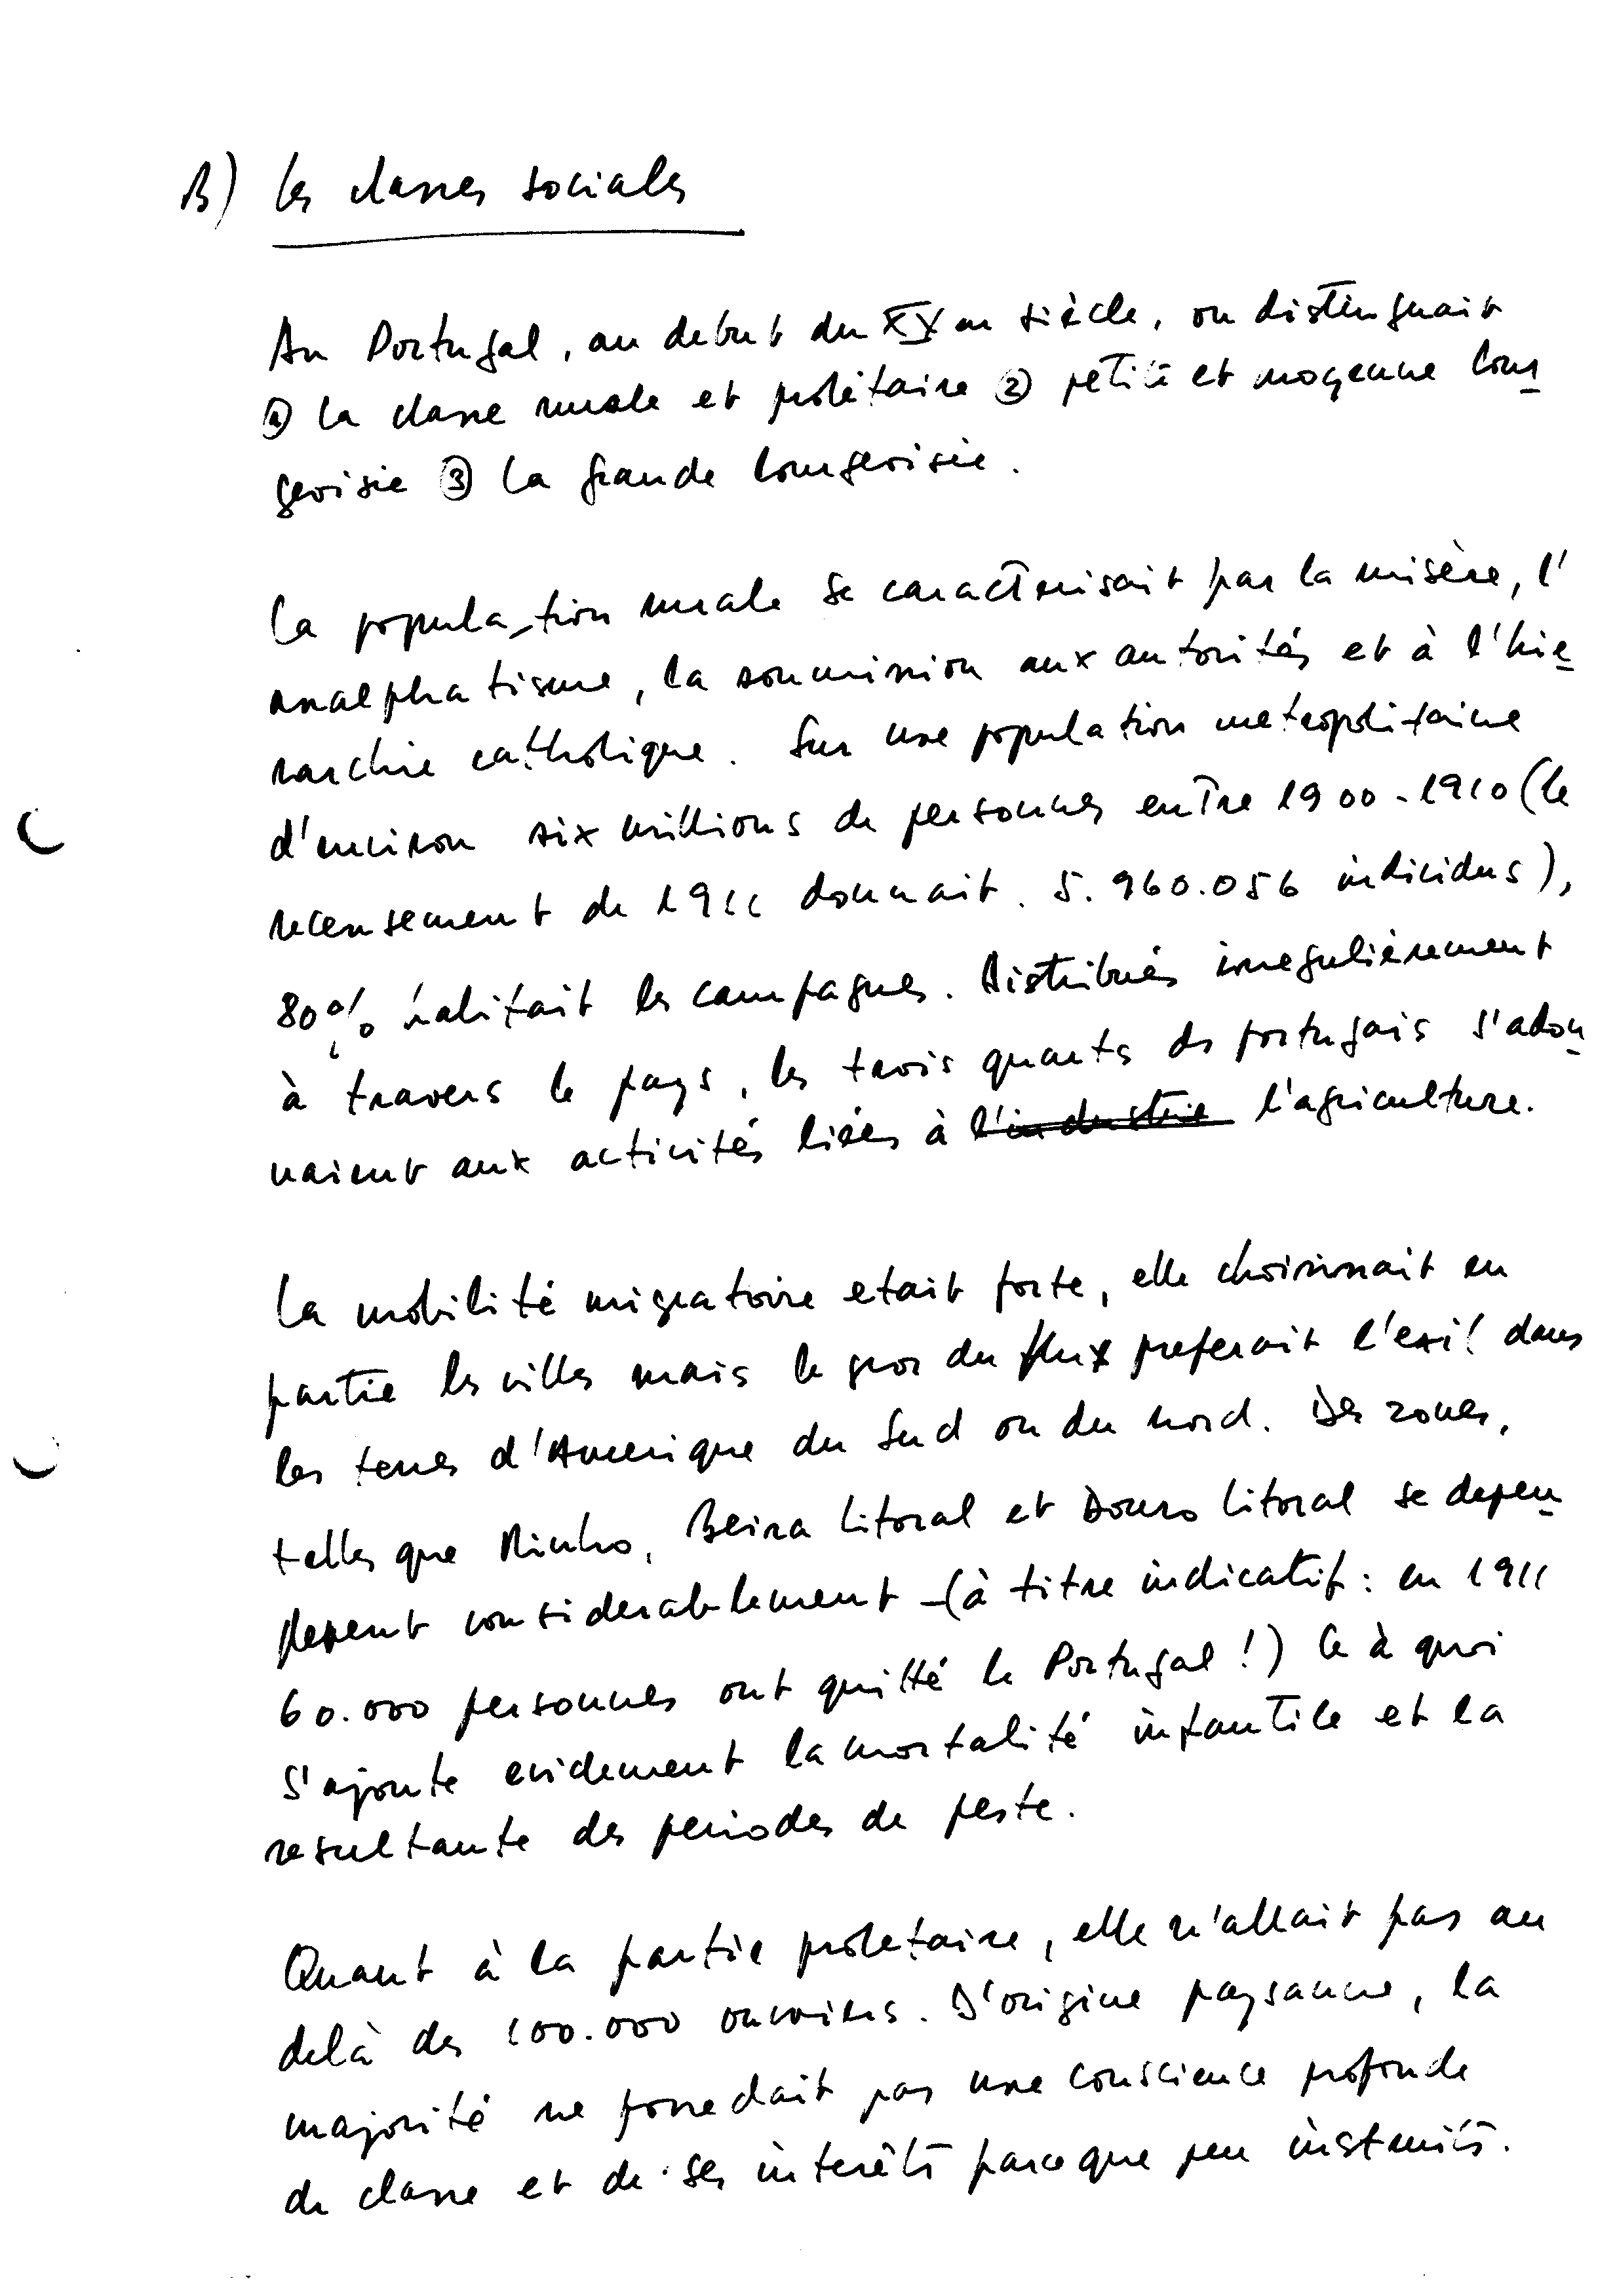 B) Les classes sociales
Au Portugal, au debut du XXem siècle, on distinguait
① la classe rurale et prolétaire ② petite et moyenne bour
geoisie ③ la grande bourgeoisie.
La population rurale se caracterisait par la misère, l'
analphatisme, la soumission aux autorités et à l'hie
rarchie catholique. Sur une population metropolitaine
d'environ six millions de personnes entre 1900-1910 (le
recensement de 1911 donnait. 5.960.056 individus),
80% habitait les campagnes. Distribués irregulièrement
à travers le pays, les trois quarts de portugais s'adon
naient aux activités liées à l'industrie l'agriculture.
La mobilité migratoire etait forte, elle choisissait en
partie les villes mais le gros du flux preferait l'exil dans
les terres d'Amerique du Sud ou du nord. Des zones,
telles que Minho, Beira Litoral et Douro Litoral se depeu
plerent considerablement (à titre indicatif: en 1911
60.000 personnes ont quitté le Portugal!) Ce à quoi
s'ajoute evidement la mortalité infantile et la
resultante des periodes de peste.
Quant à la partie proletaire, elle n'allait pas au
delà des 100.000 ouvriers. D'origine paysanne, la
majorité ne possedait pas une conscience profonde
de classe et de ses interêts parce que peu instruits.